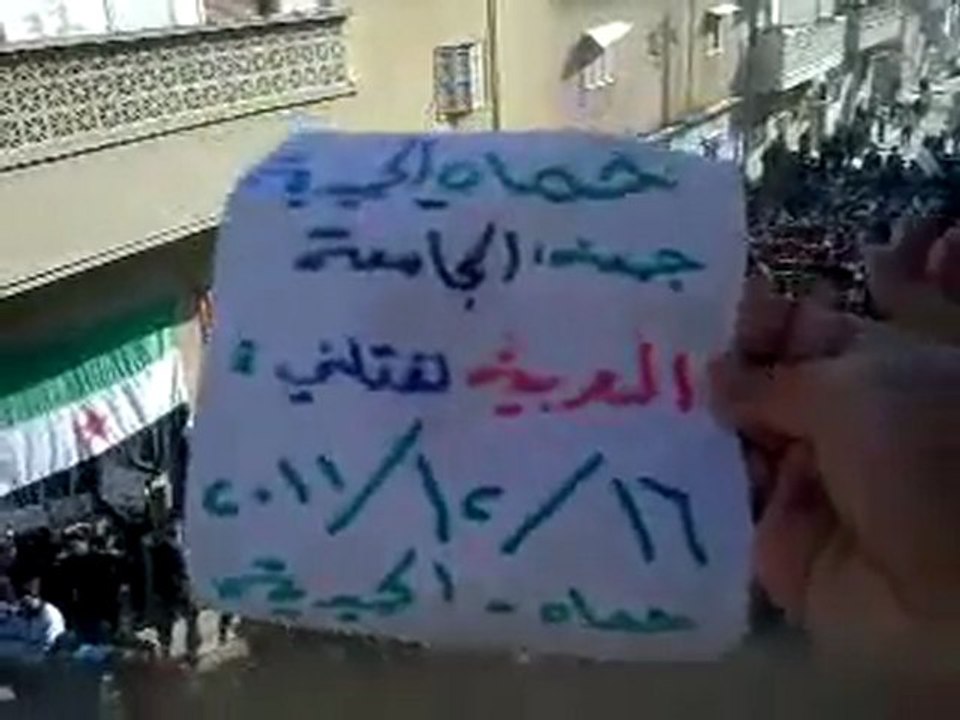 حماه الحميدية
جمعة الجامعة
العربية تقتلني :
١٦/١٢/٢٠١١
حماه - الحميدية